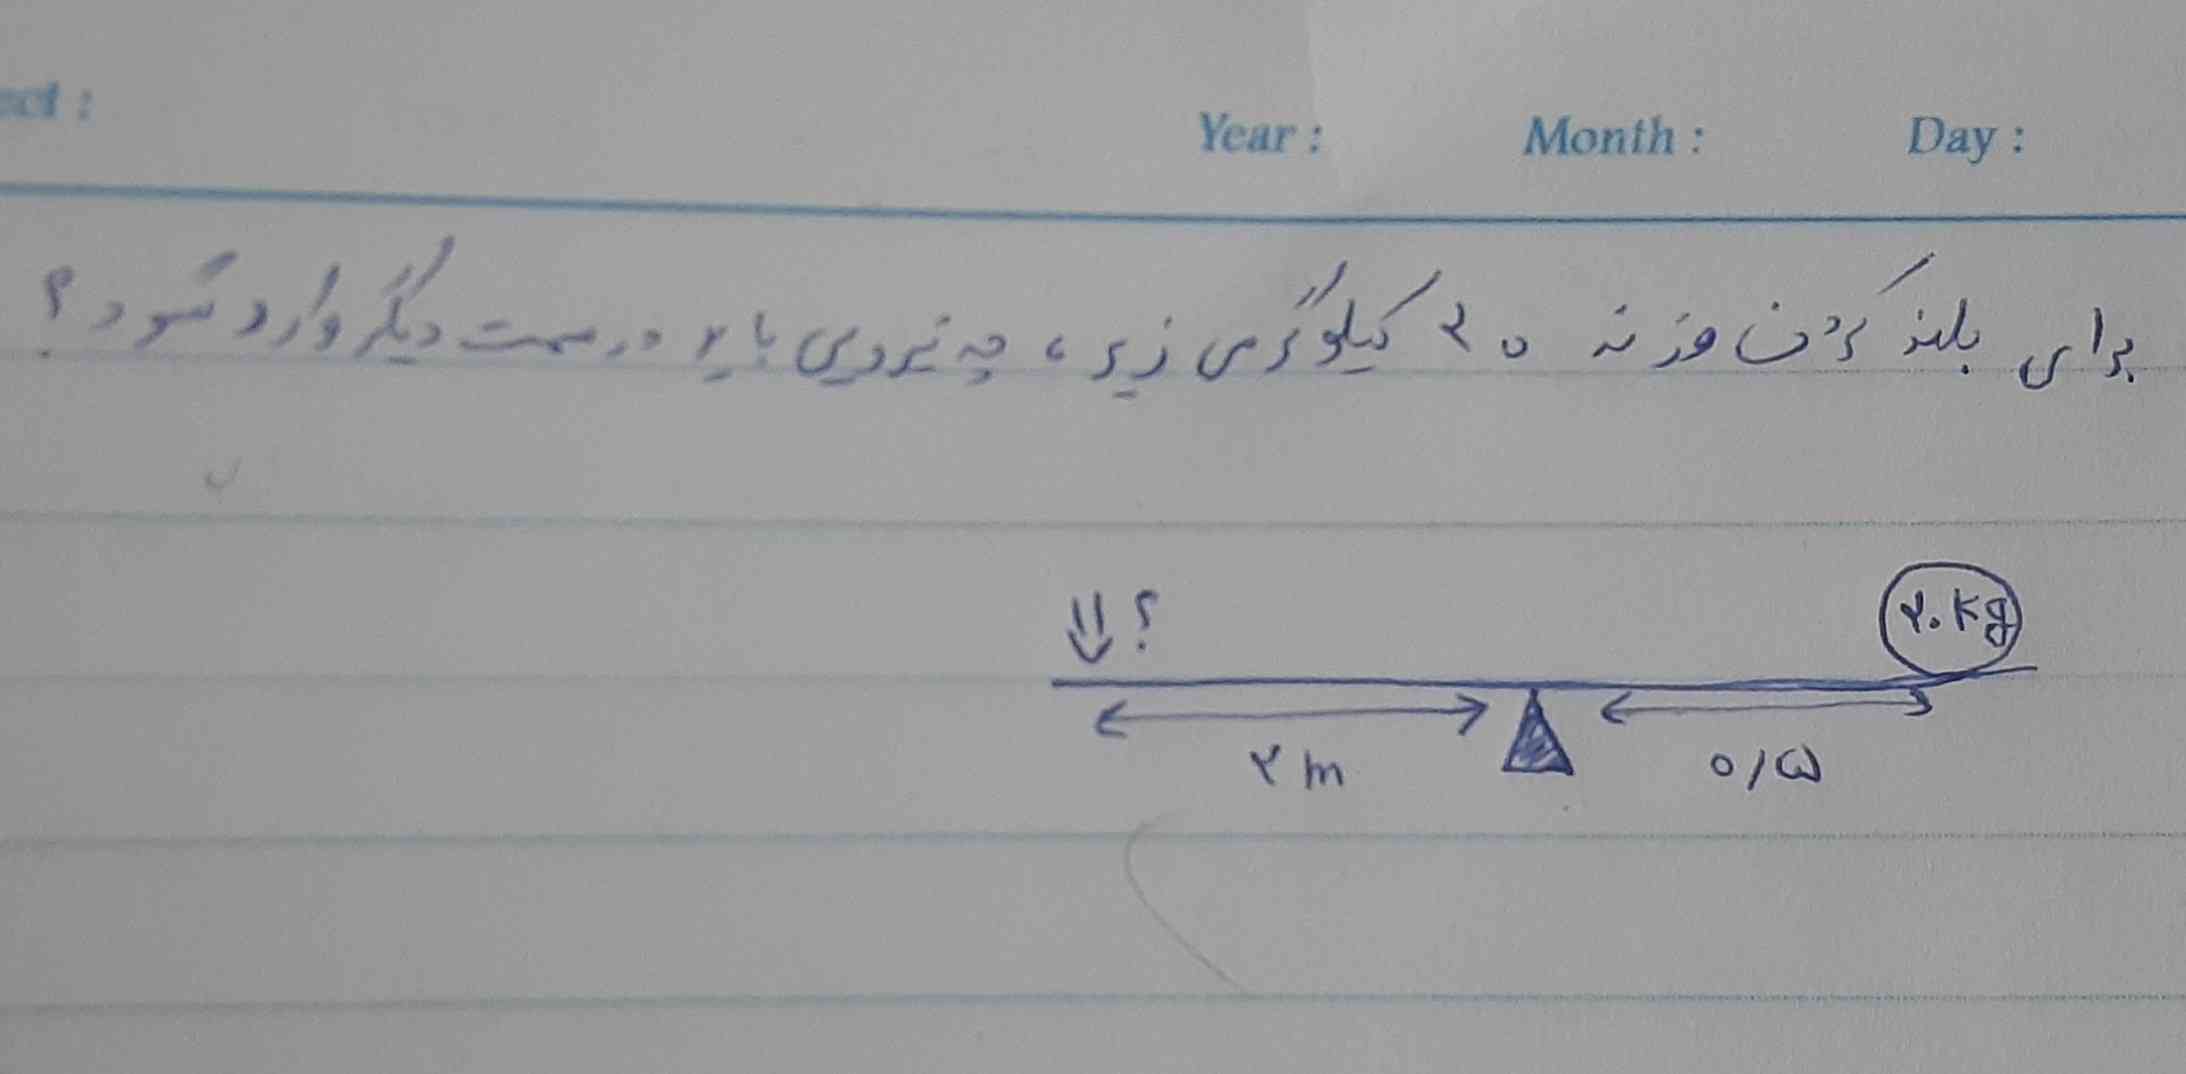 ect :
Year : Month : Day :
برای بلند کردن وزنه ۲۰ کیلوگرمی زیر، چه نیرویی باید در سمت دیگر وارد شود؟
؟
۲۰ kg
۲ m
۰/۵